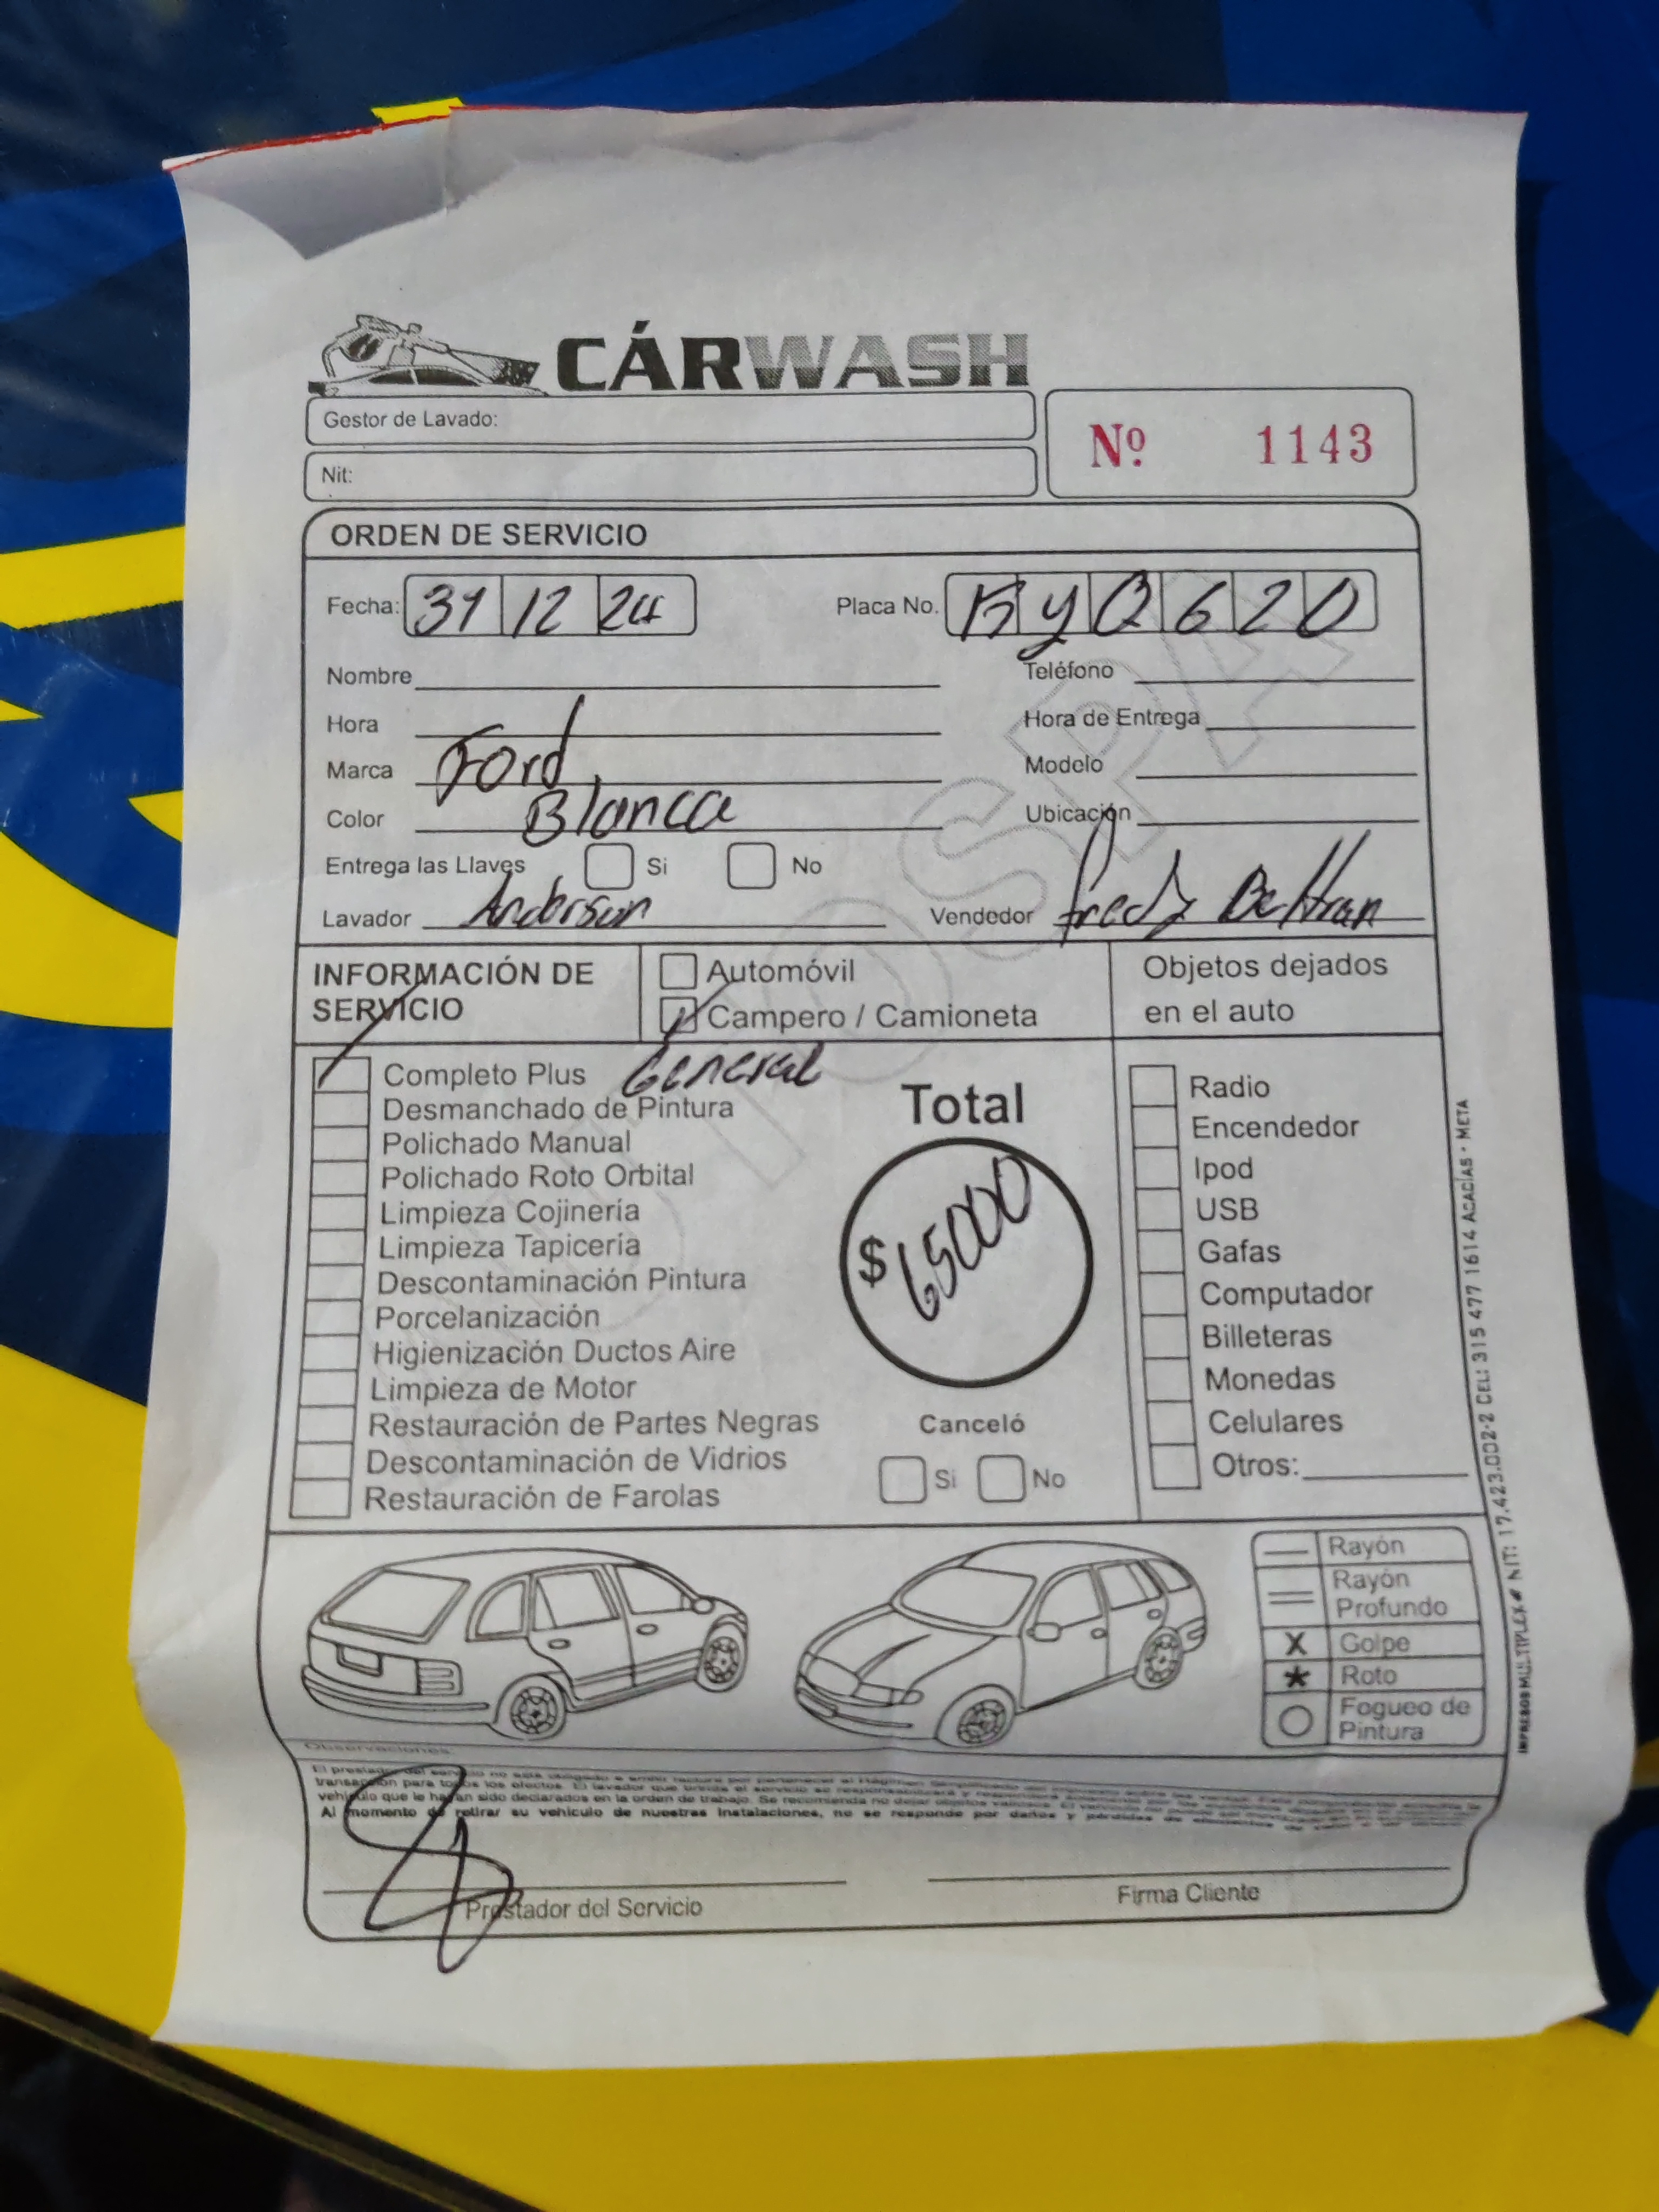 CÁRWASH
Gestor de Lavado:
Nit:
Nº 1143
ORDEN DE SERVICIO
Fecha: 31 12 24 Placa No. KYQ620
Nombre Teléfono
Hora Hora de Entrega
Marca Ford Modelo
Color Blanca Ubicación
Entrega las Llaves Si No
Lavador Anderson Vendedor Fredy Beltran
INFORMACIÓN DE SERVICIO
Automóvil
Campero / Camioneta
Objetos dejados en el auto
Completo Plus General
Desmanchado de Pintura
Polichado Manual
Polichado Roto Orbital
Limpieza Cojinería
Limpieza Tapicería
Descontaminación Pintura
Porcelanización
Higienización Ductos Aire
Limpieza de Motor
Restauración de Partes Negras
Descontaminación de Vidrios
Restauración de Farolas
Total
$ 65000
Canceló
Si No
Radio
Encendedor
Ipod
USB
Gafas
Computador
Billeteras
Monedas
Celulares
Otros:
Rayón
Rayón Profundo
X Golpe
* Roto
Fogueo de Pintura
IMPRESOS MULTIPLEX # NIT: 17.423.002-2 CEL: 315 477 1614 ACACÍAS - META
Observaciones
Al momento de retirar su vehículo de nuestras instalaciones, no se responde por daños y pérdidas de elementos de valor
Prestador del Servicio Firma Cliente